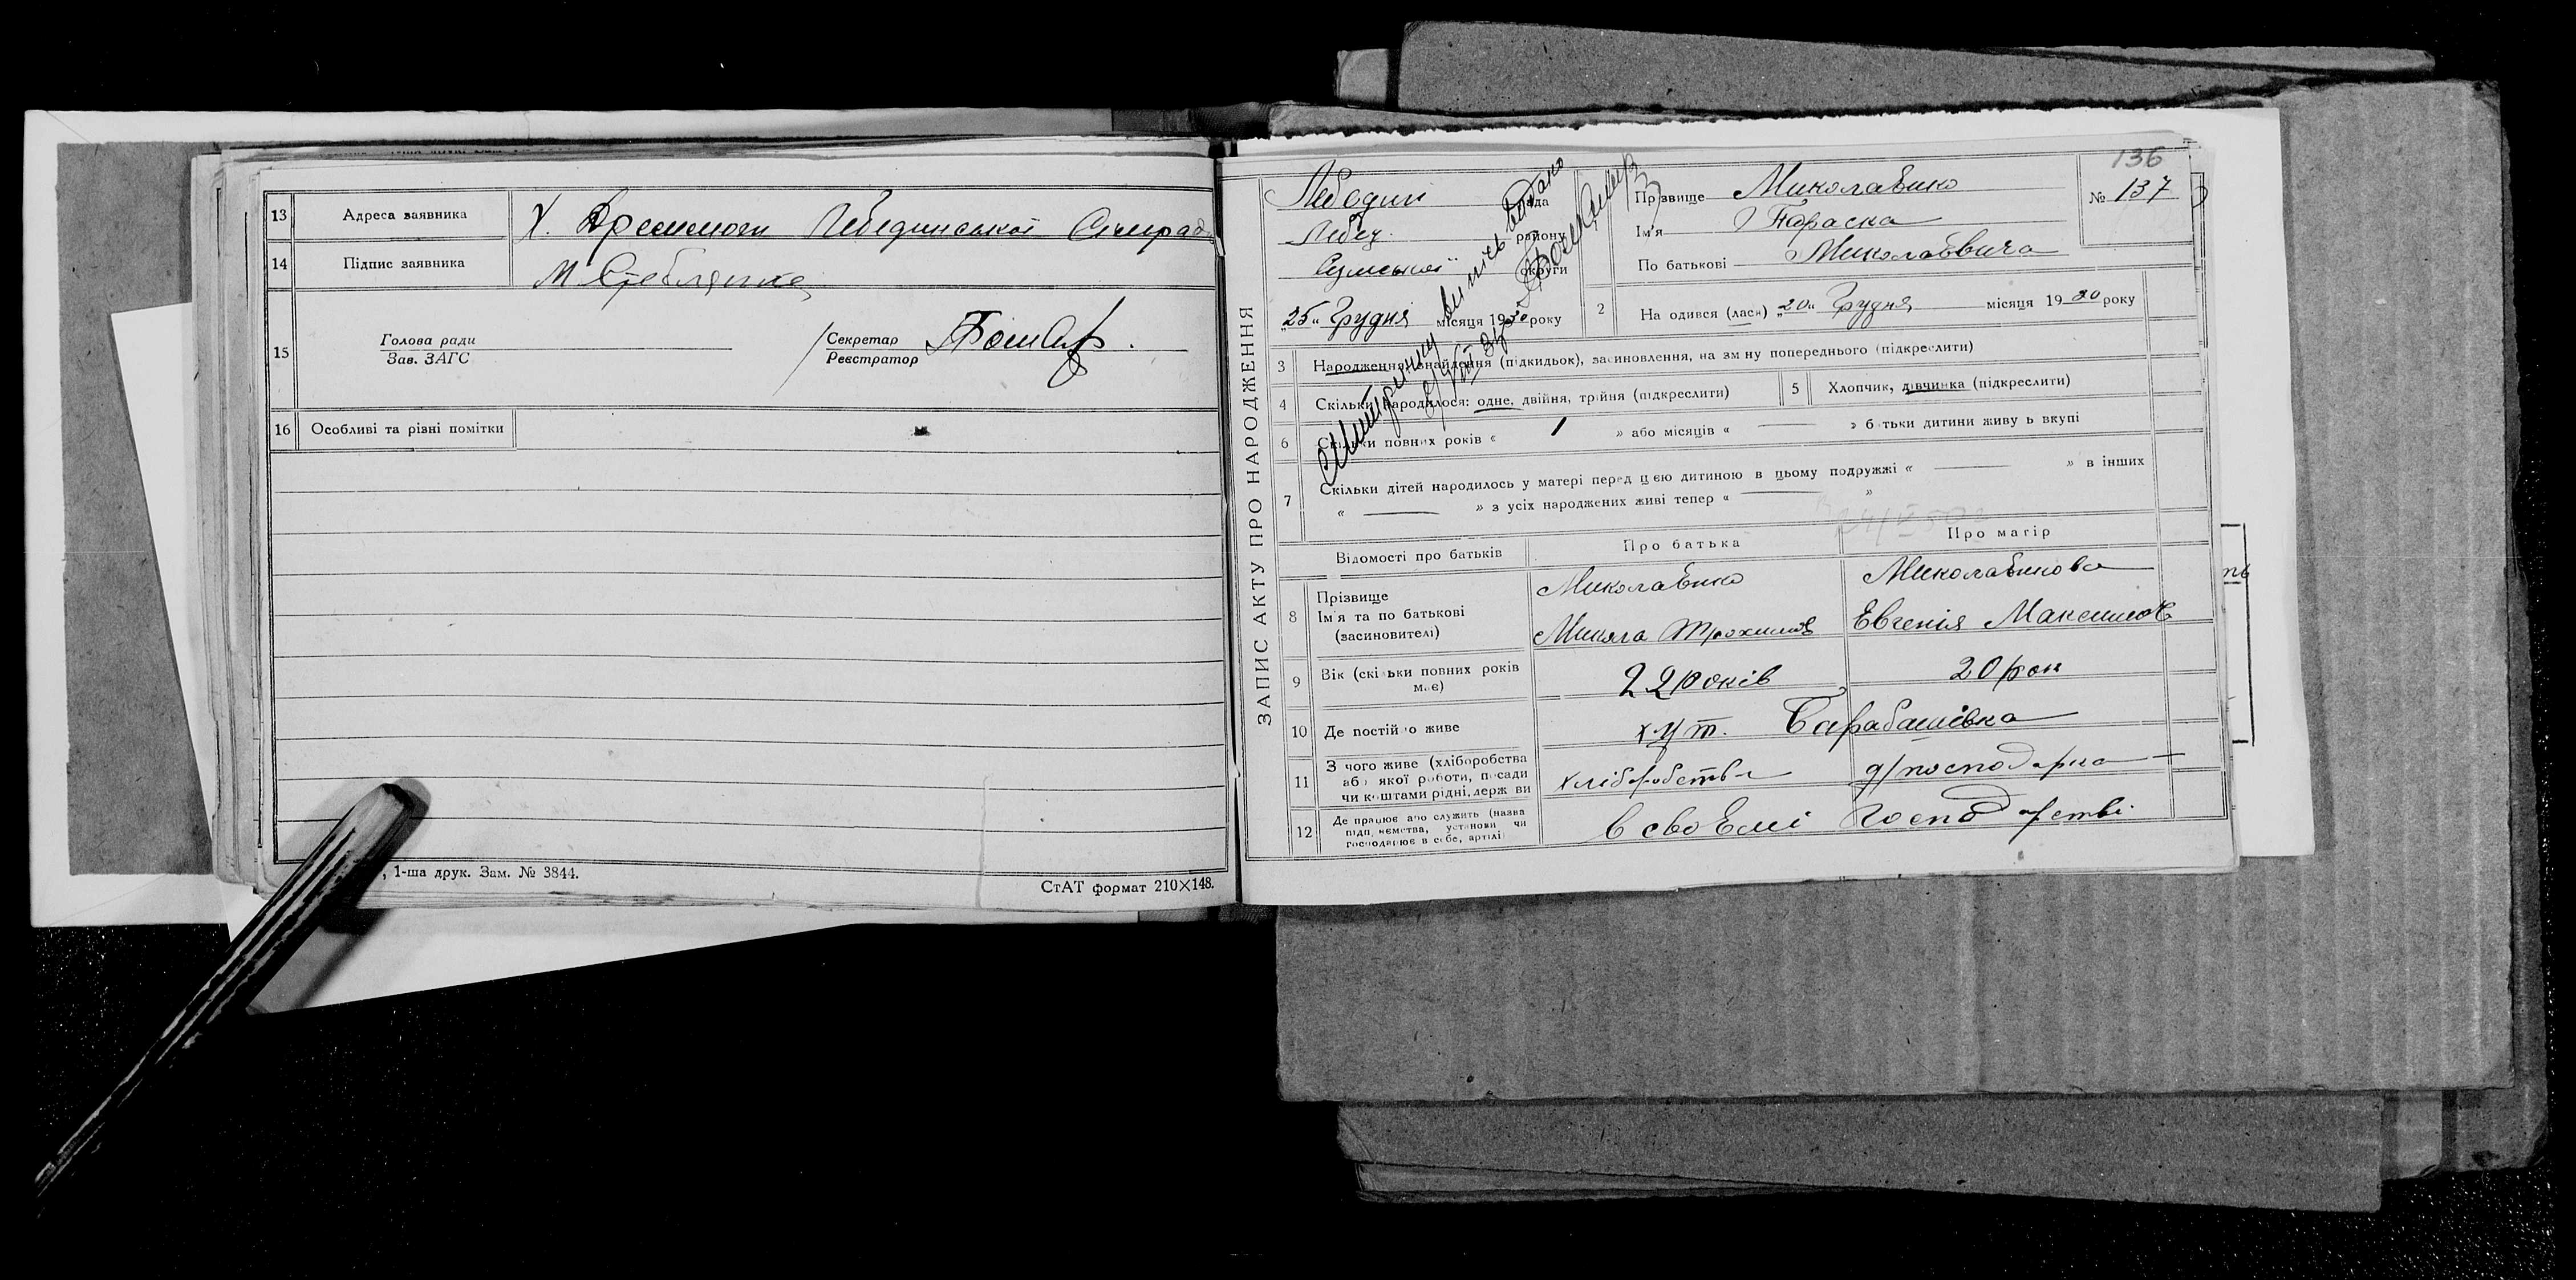 13 Адреса заявника Х. Лебединської Сільрад
14 Підпис заявника М Стеблянко
15 Голова ради
Зав. ЗАГС
Секретар
Реєстратор
16 Особливі та різні помітки
, 1-ша друк. Зам. № 3844.
СтАТ формат 210×148.
ЗАПИС АКТУ ПРО НАРОДЖЕННЯ
136
№ 137
Лебедин рада
Лебед. району
Сумської округи
„25“ Грудня місяця 1930 року
випись видано
Прізвище Миколаєнко
Ім'я Параска
По батькові Миколаєвича
2 На одився (лась) „20“ Грудня місяця 1930 року
3 Народження, знайдення (підкидьок), засиновлення, на зм ну попереднього (підкреслити)
4 Скільки народилося: одне, двійня, трійня (підкреслити)
5 Хлопчик, дівчинка (підкреслити)
6 Скільки повних років « 1 » або місяців « — » б тьки дитини живу ь вкупі
7 Скільки дітей народилось у матері перед цією дитиною в цьому подружжі « — » в інших
« — » з усіх народжених живі тепер « — »
Відомості про батьків
Про батька
Про матір
8 Прізвище
Ім'я та по батькові
(засновителі)
Миколаєнко
Микола Трохимов
Миколаєнкова
Евгенія Максимов
9 Вік (скільки повних років має)
22 років
20 рок
10 Де постійно живе
хут. Барабашівка
11 З чого живе (хліборобства
або якої роботи, посади
чи коштами рідні, держ ви
хліборобства
д/господарка
12 Де працює або служить (назва
підп иємства, установи чи
господарює в себе, артілі)
в своєму господарстві